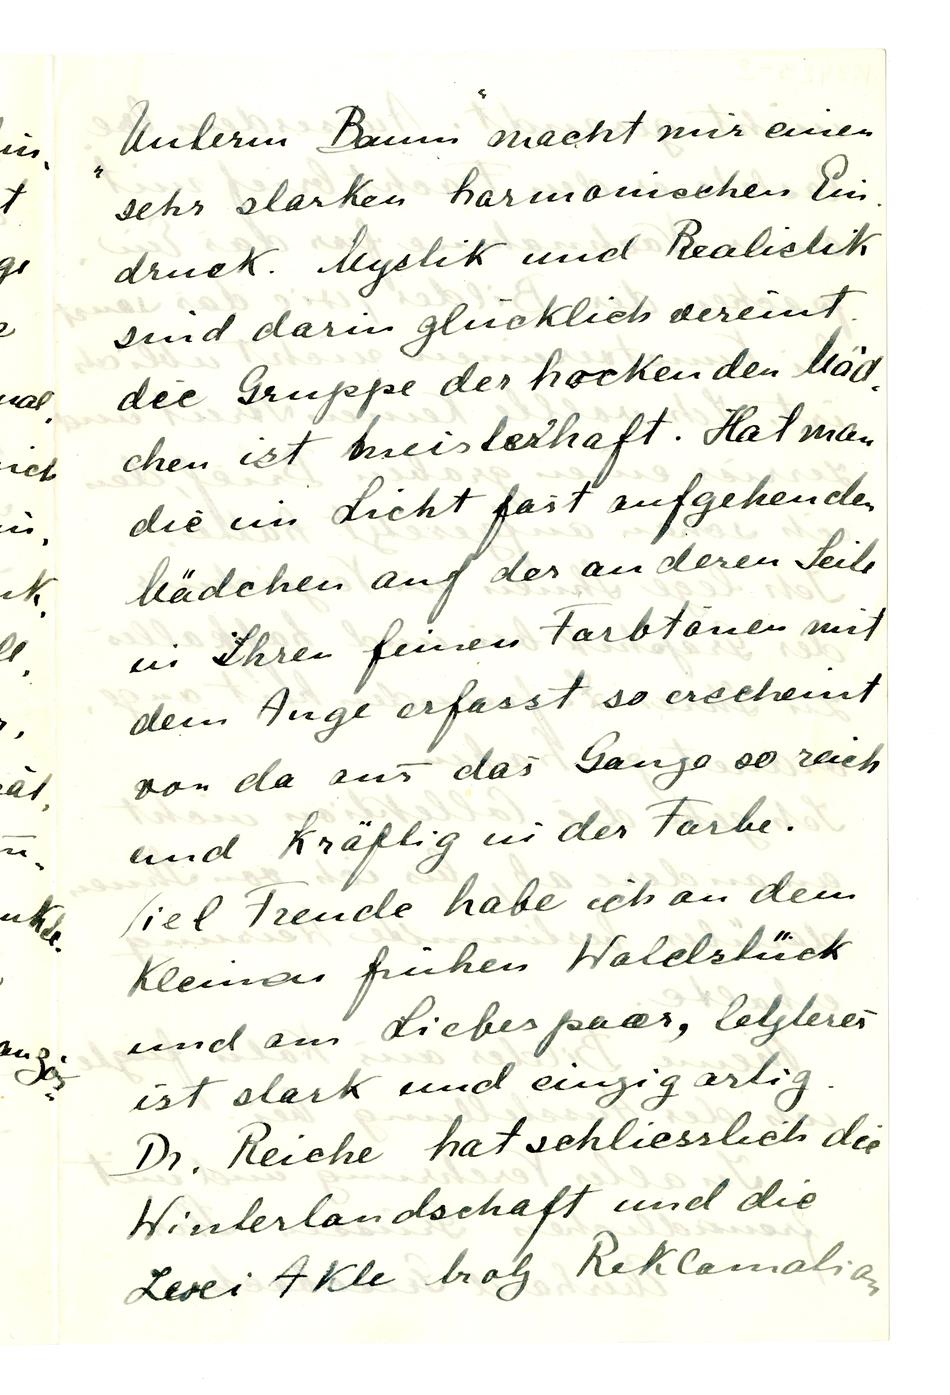 „Unterm Baum“ macht mir einen
sehr starken harmonischen Ein-
druck. Mystik und Realistik
sind darin glücklich vereint.
die Gruppe der hockenden Mäd-
chen ist meisterhaft. Hat man
die im Licht fast aufgehenden
Mädchen auf der anderen Seite
in Ihren feinen Farbtönen mit
dem Auge erfasst so erscheint
von da aus das Ganze so reich
und kräftig in der Farbe.
Viel Freude habe ich an dem
kleinen frühen Waldstück
und am Liebespaar, letzteres
ist stark und einzigartig.
Dr. Reiche hat schliesslich die
Winterlandschaft und die
zwei Akte trotz Reklamation